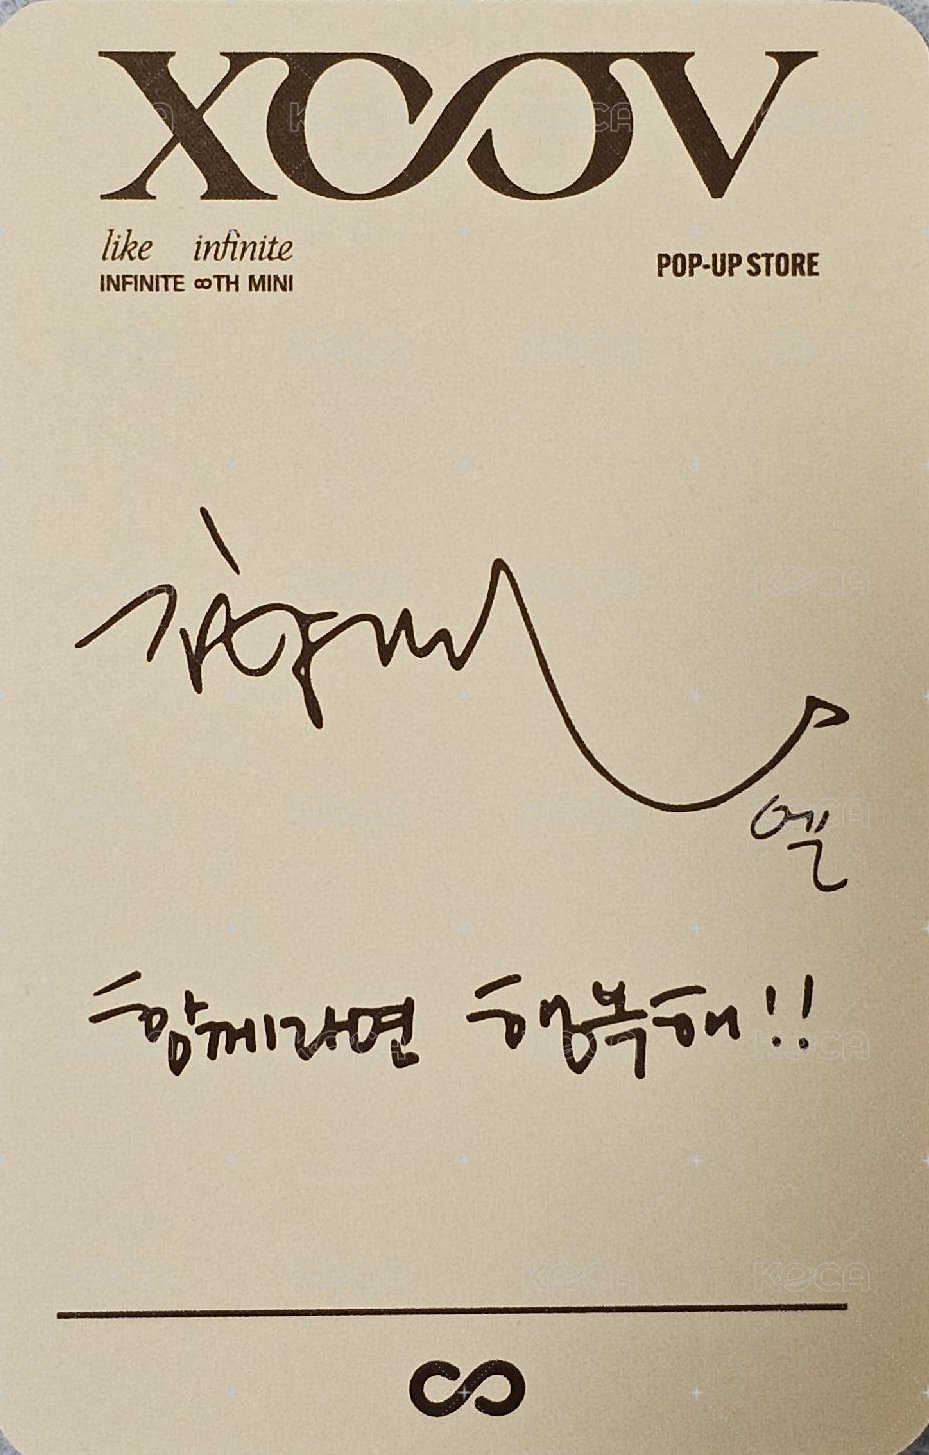 X∞V
like infinite
INFINITE ∞TH MINI
POP-UP STORE
엘
함께라면 행복해!!
KOCA